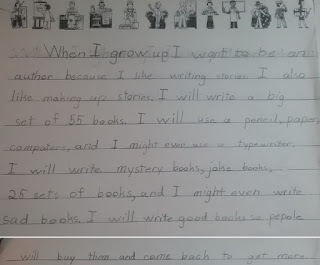 When I grow up I want to be an
author because I like writing stories. I also
like making up stories. I will write a big
set of 55 books. I will use a pencil, paper,
computers, and I might even use a typewriter.
I will write mystery books, joke books,
25 sets of books, and I might even write
sad books. I will write good books so pepole
will buy them and come back to get more.